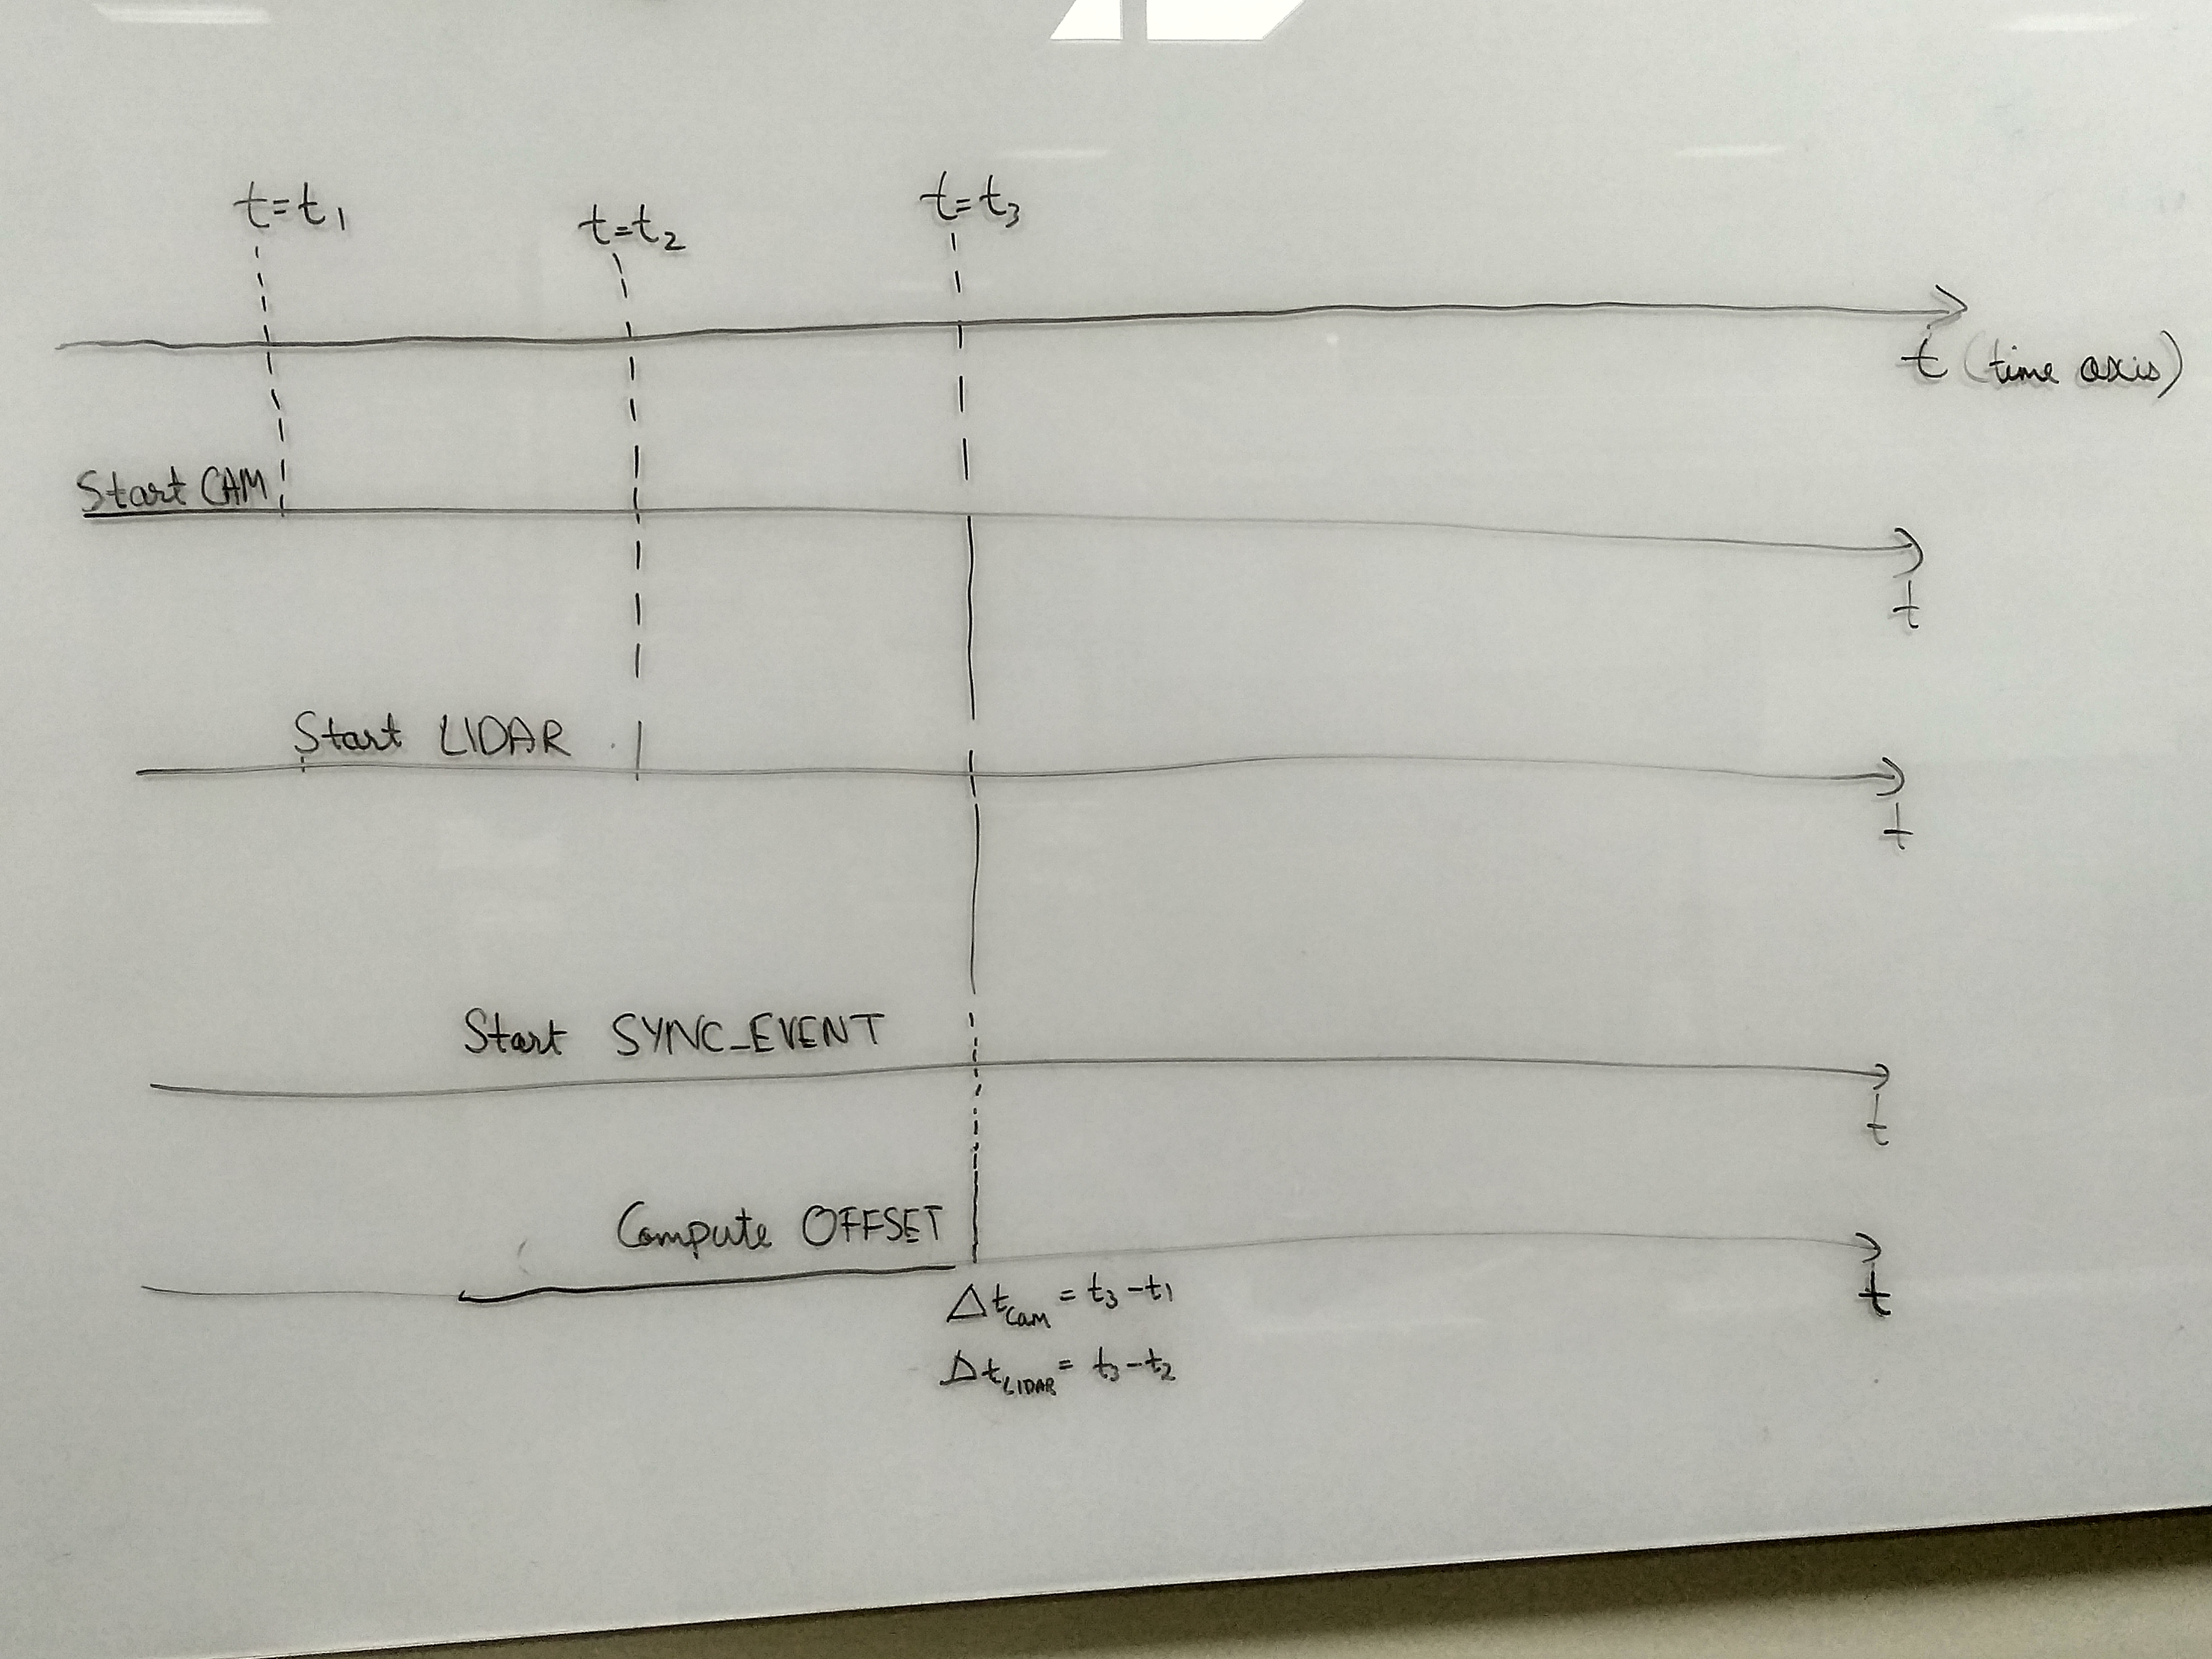 t=t₁
t=t₂
t=t₃
t (time axis)
Start CAM
t
Start LIDAR
t
Start SYNC_EVENT
t
Compute OFFSET
t
Δt_Cam = t₃-t₁
Δt_LIDAR = t₃-t₂